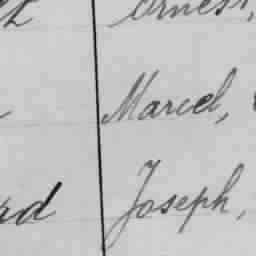 Ernest,
Marcel,
rd Joseph,